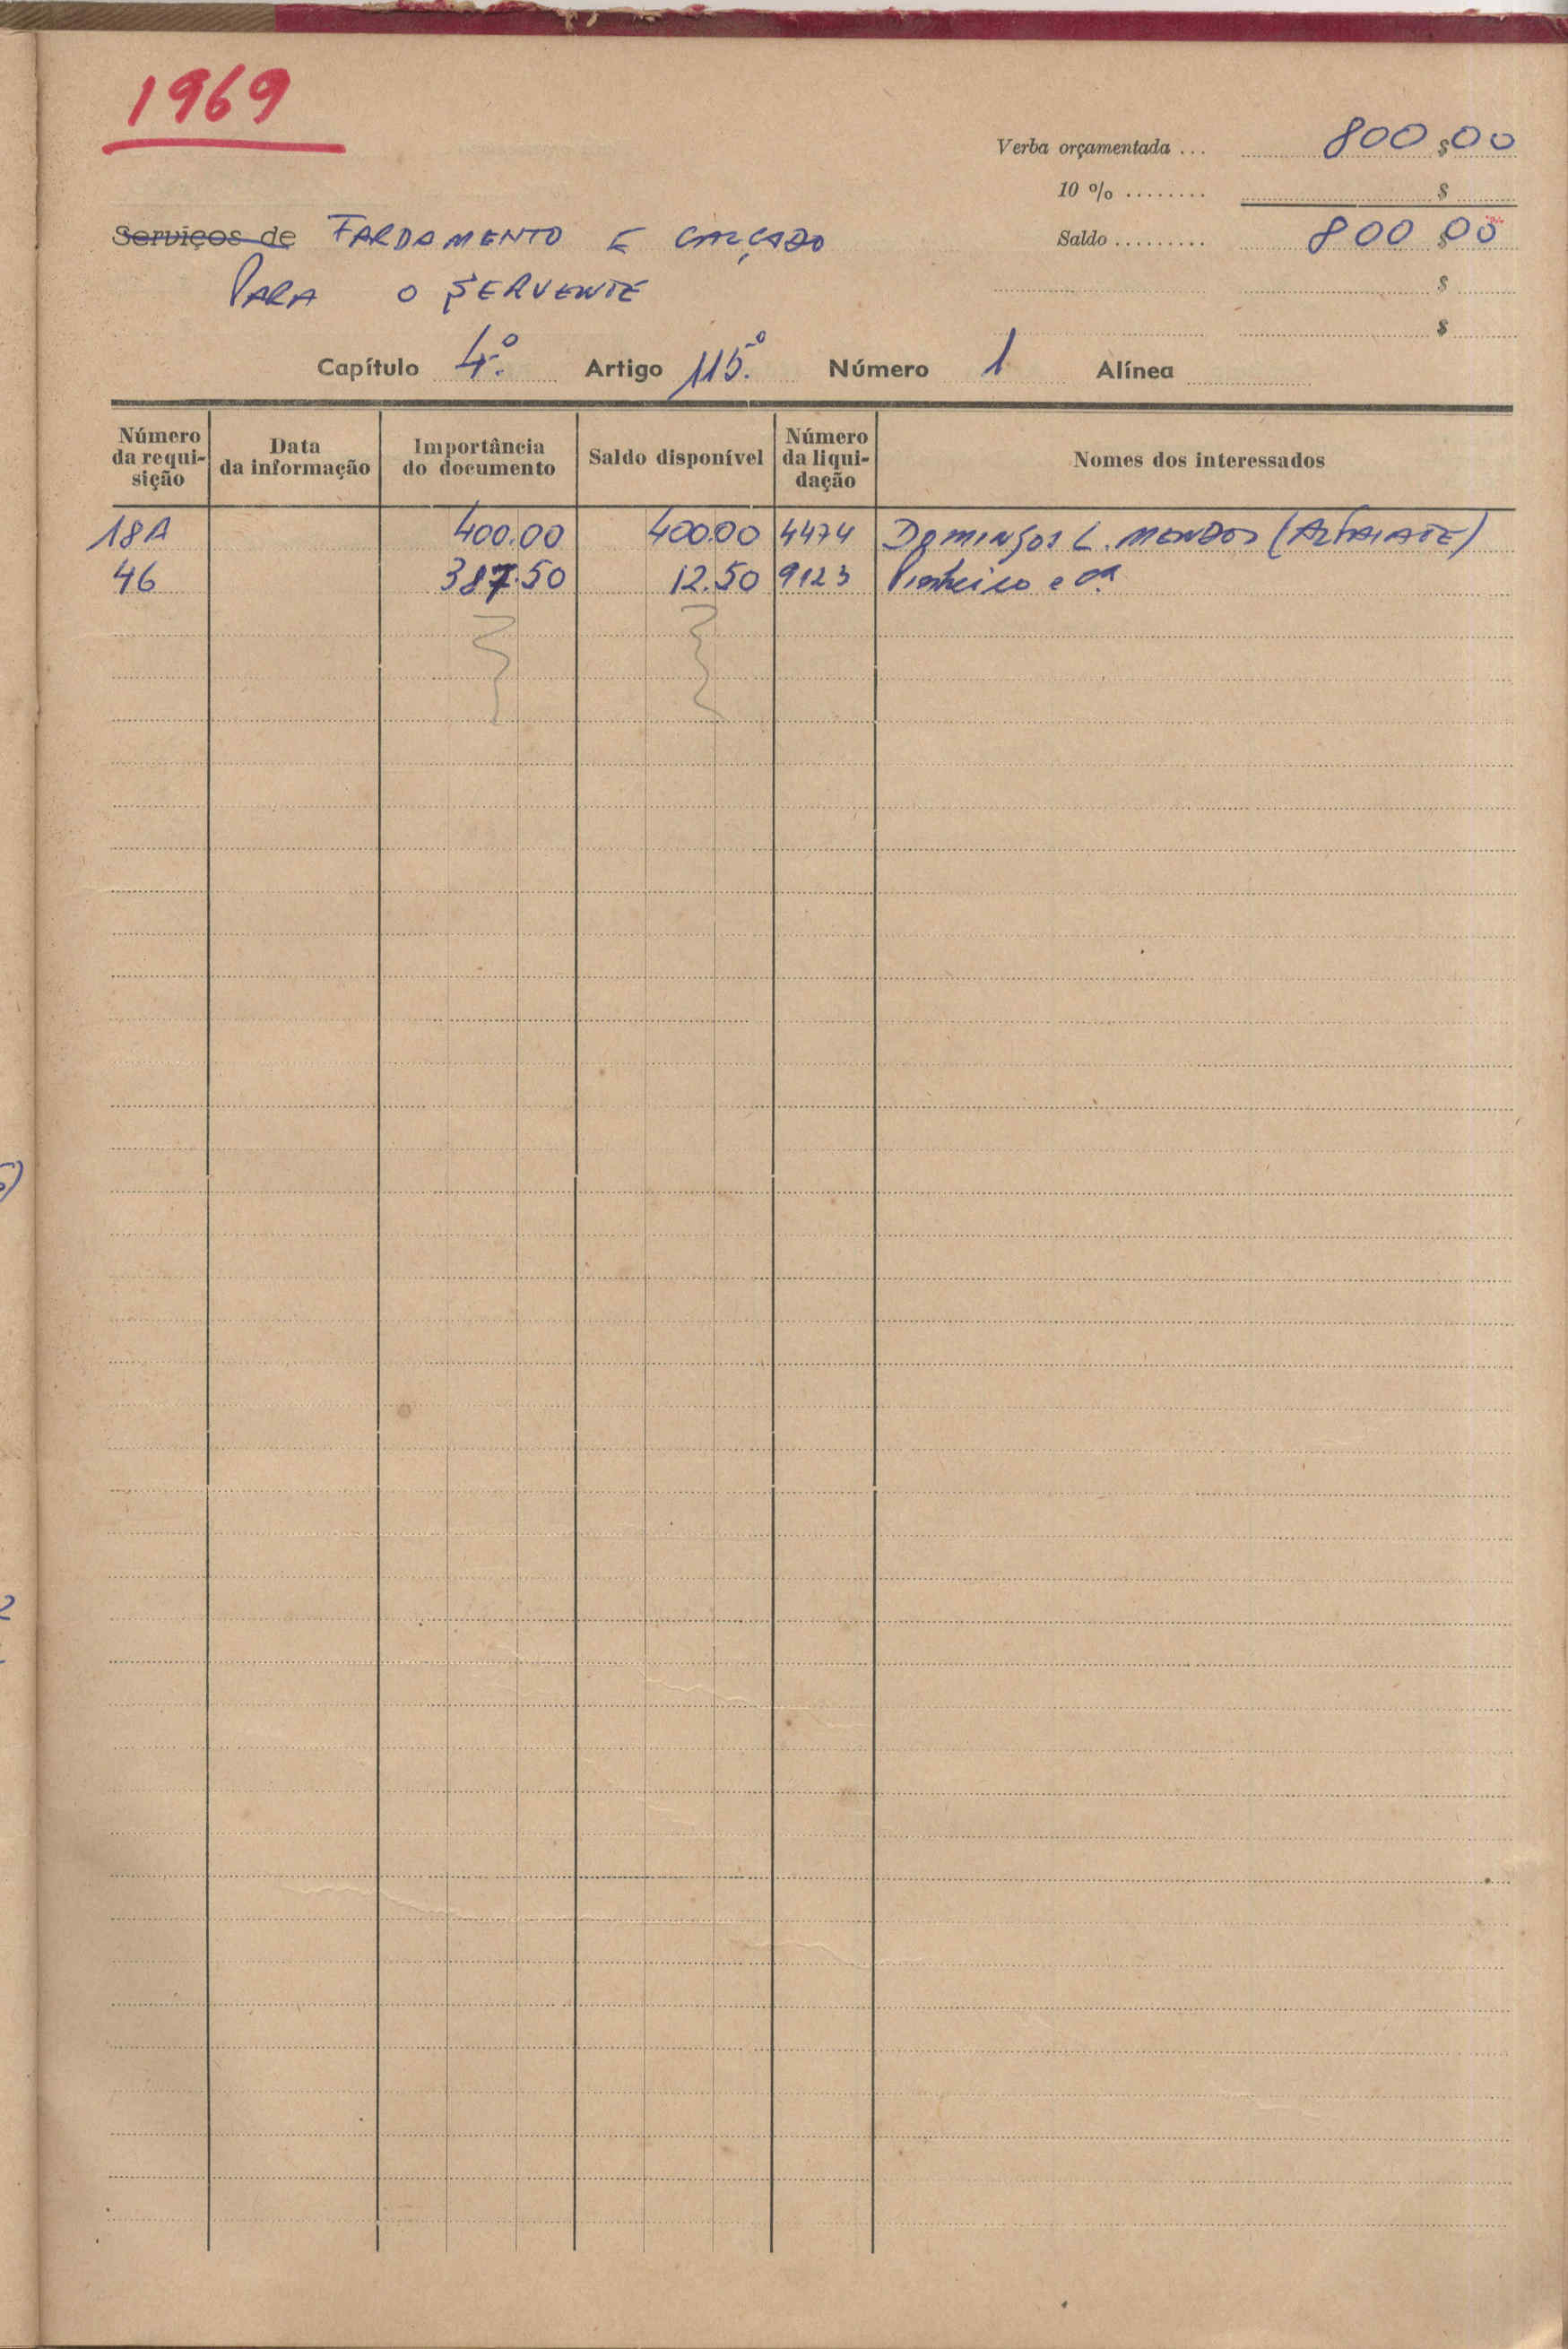 1969
Verba orçamentada ... 800$00
10 % ........ $
Serviços de FARDAMENTO E CALÇADO
Saldo ......... 800$00
PARA O SERVENTE
$
$
Capítulo 4.º Artigo 115.º Número 1 Alínea
Número da requi-sição Data da informação Importância do documento Saldo disponível Número da liqui-dação Nomes dos interessados
18A 400.00 400.00 4474 DOMINGOS L. (ALFAIATE)
46 387.50 12.50 9123 Pinheiro e Cª